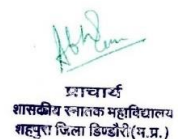 प्राचार्य
शासकीय स्नातक महाविद्यालय
शहपुरा जिला डिण्डौरी (म.प्र.)